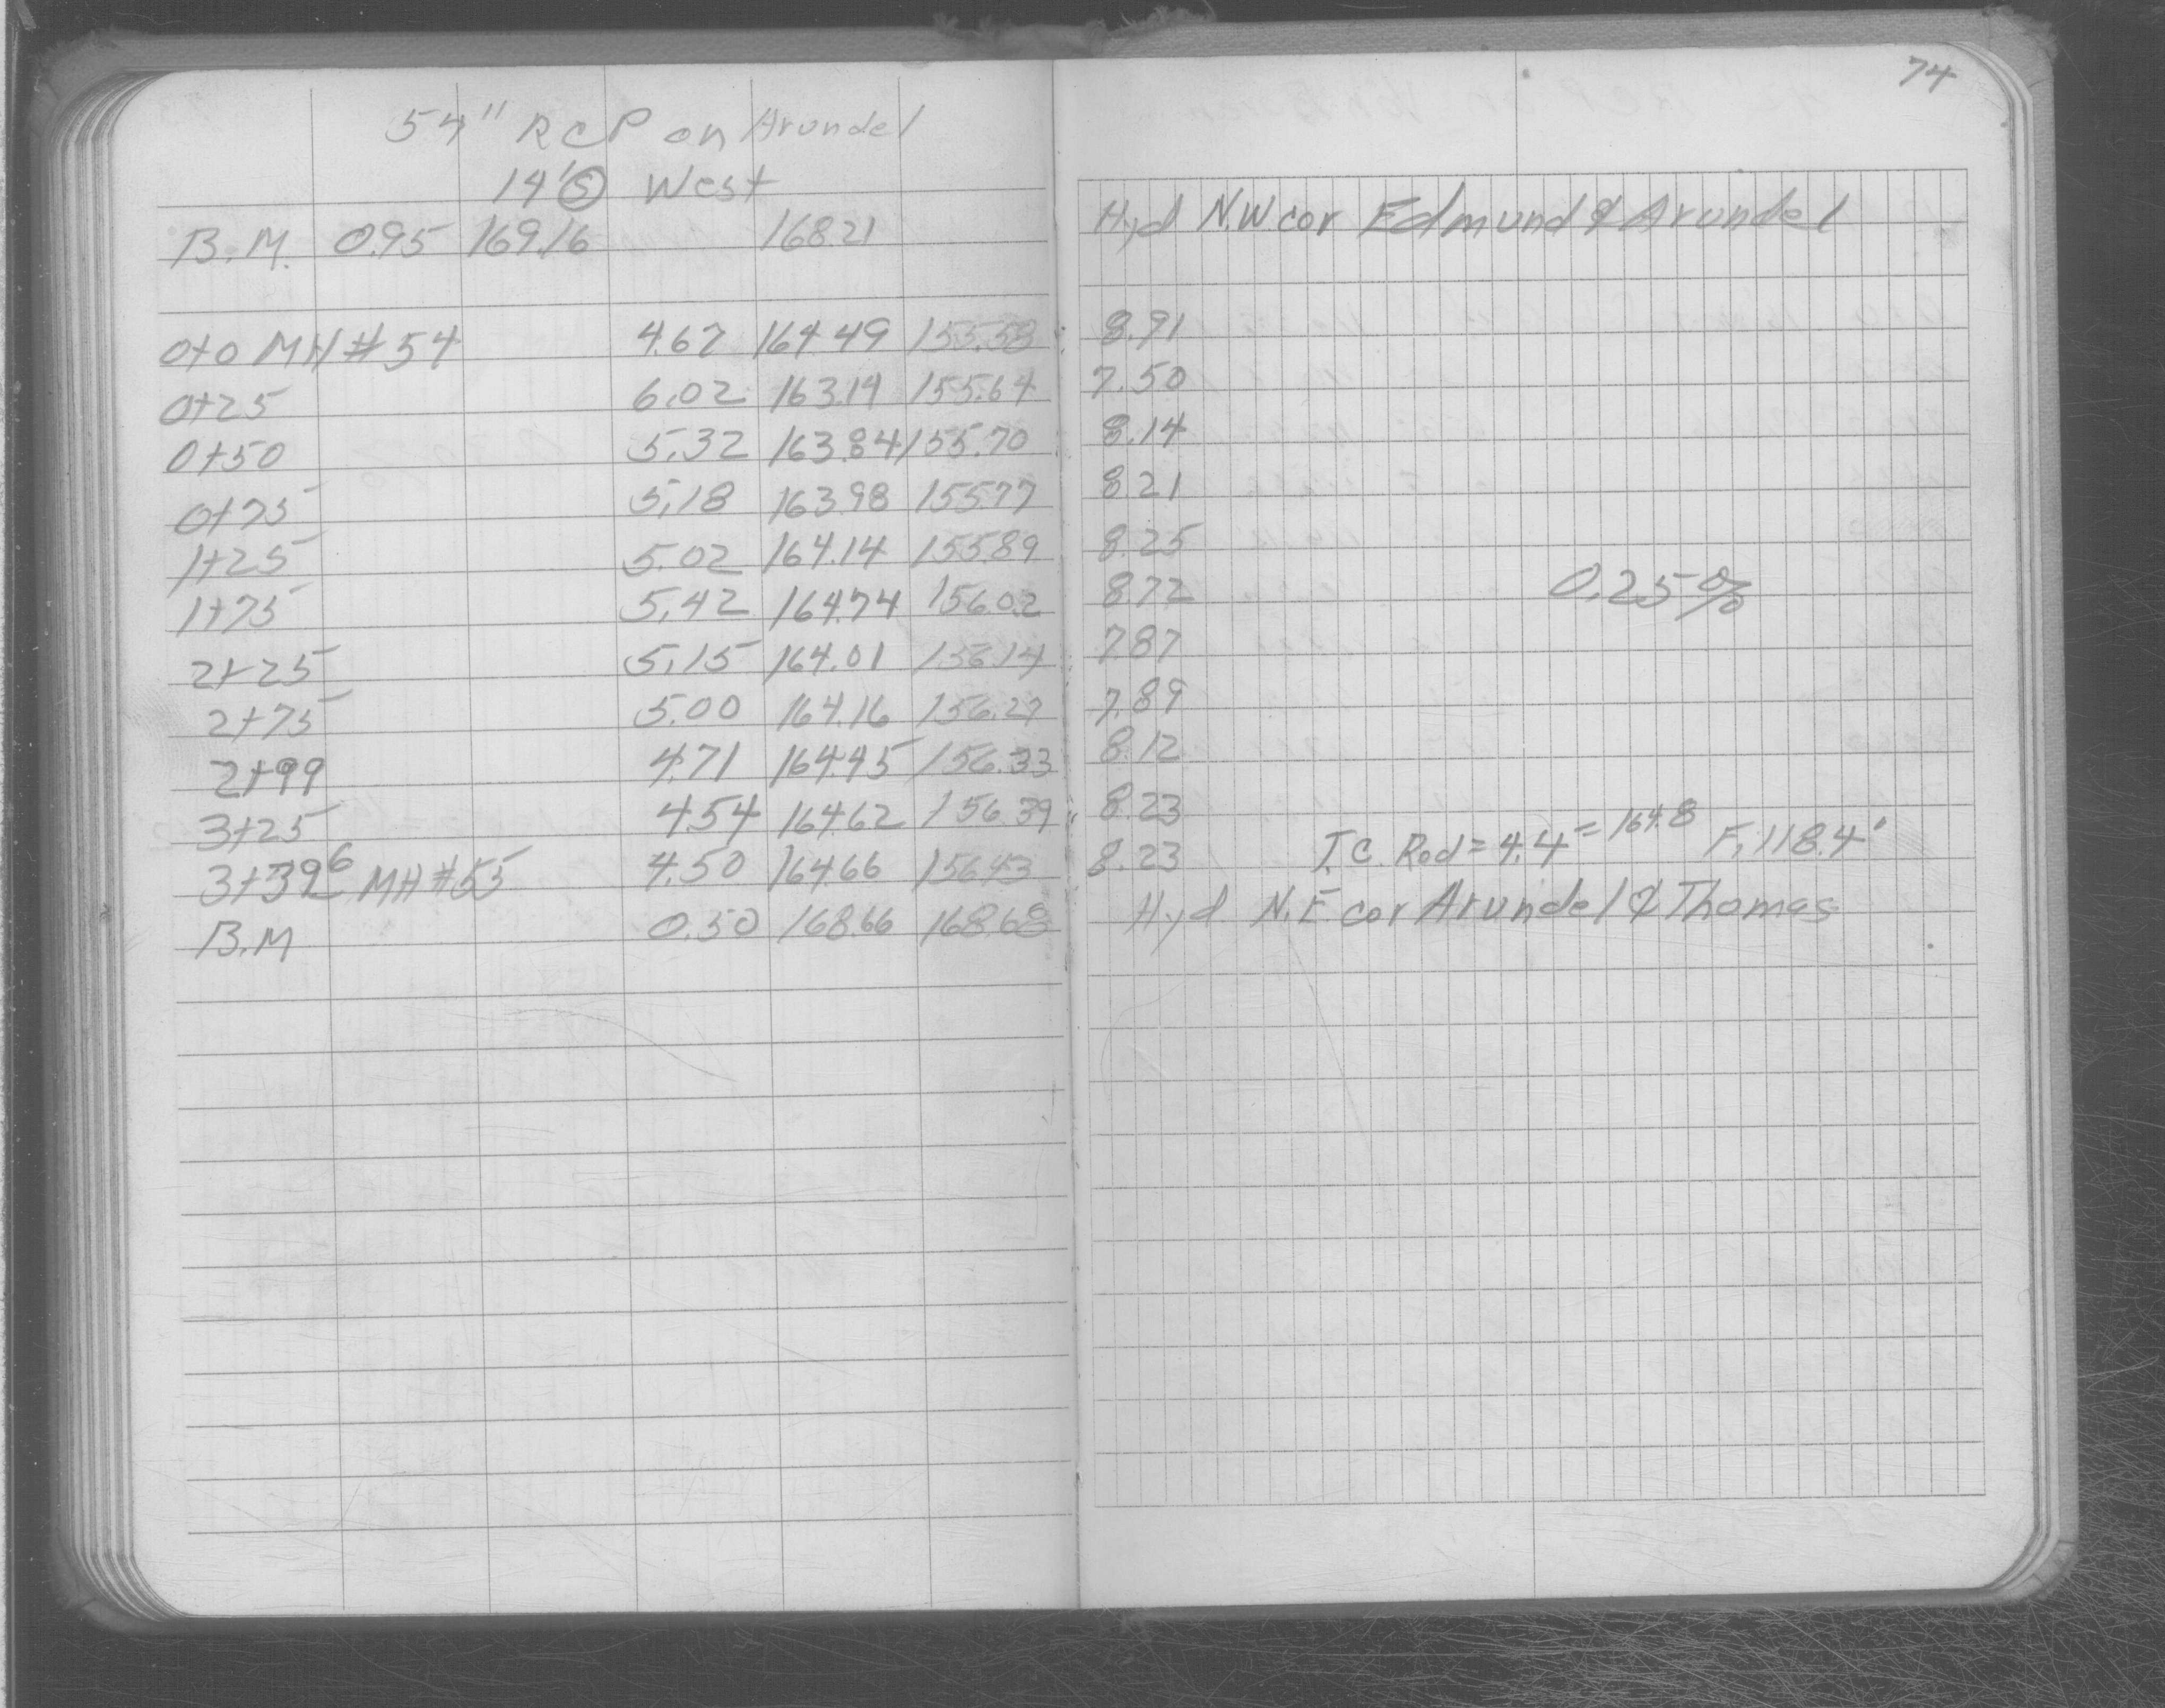 54" RCP on Arundel
14' Ⓢ West
B.M. 0.95 169.16 168.21
0+0 MH #54 4.67 164.49 155.58
0+25 6.02 163.14 155.64
0+50 5.32 163.84 155.70
0+75 5.18 163.98 155.77
1+25 5.02 164.14 155.89
1+75 5.42 164.74 156.02
2+25 5.15 164.01 156.14
2+75 5.00 164.16 156.27
2+99 4.71 164.45 156.33
3+25 4.54 164.62 156.39
3+39⁶ MH #55 4.50 164.66 156.43
B.M 0.50 168.66 168.68
74
Hyd N.W. cor Edmund & Arundel
8.91
7.50
8.14
8.21
8.25
8.72 0.25%
7.87
7.89
8.12
8.23
8.23 T.C. Rod = 4.4 = 164.8 F, 118.4'
Hyd N.E. cor Arundel & Thomas